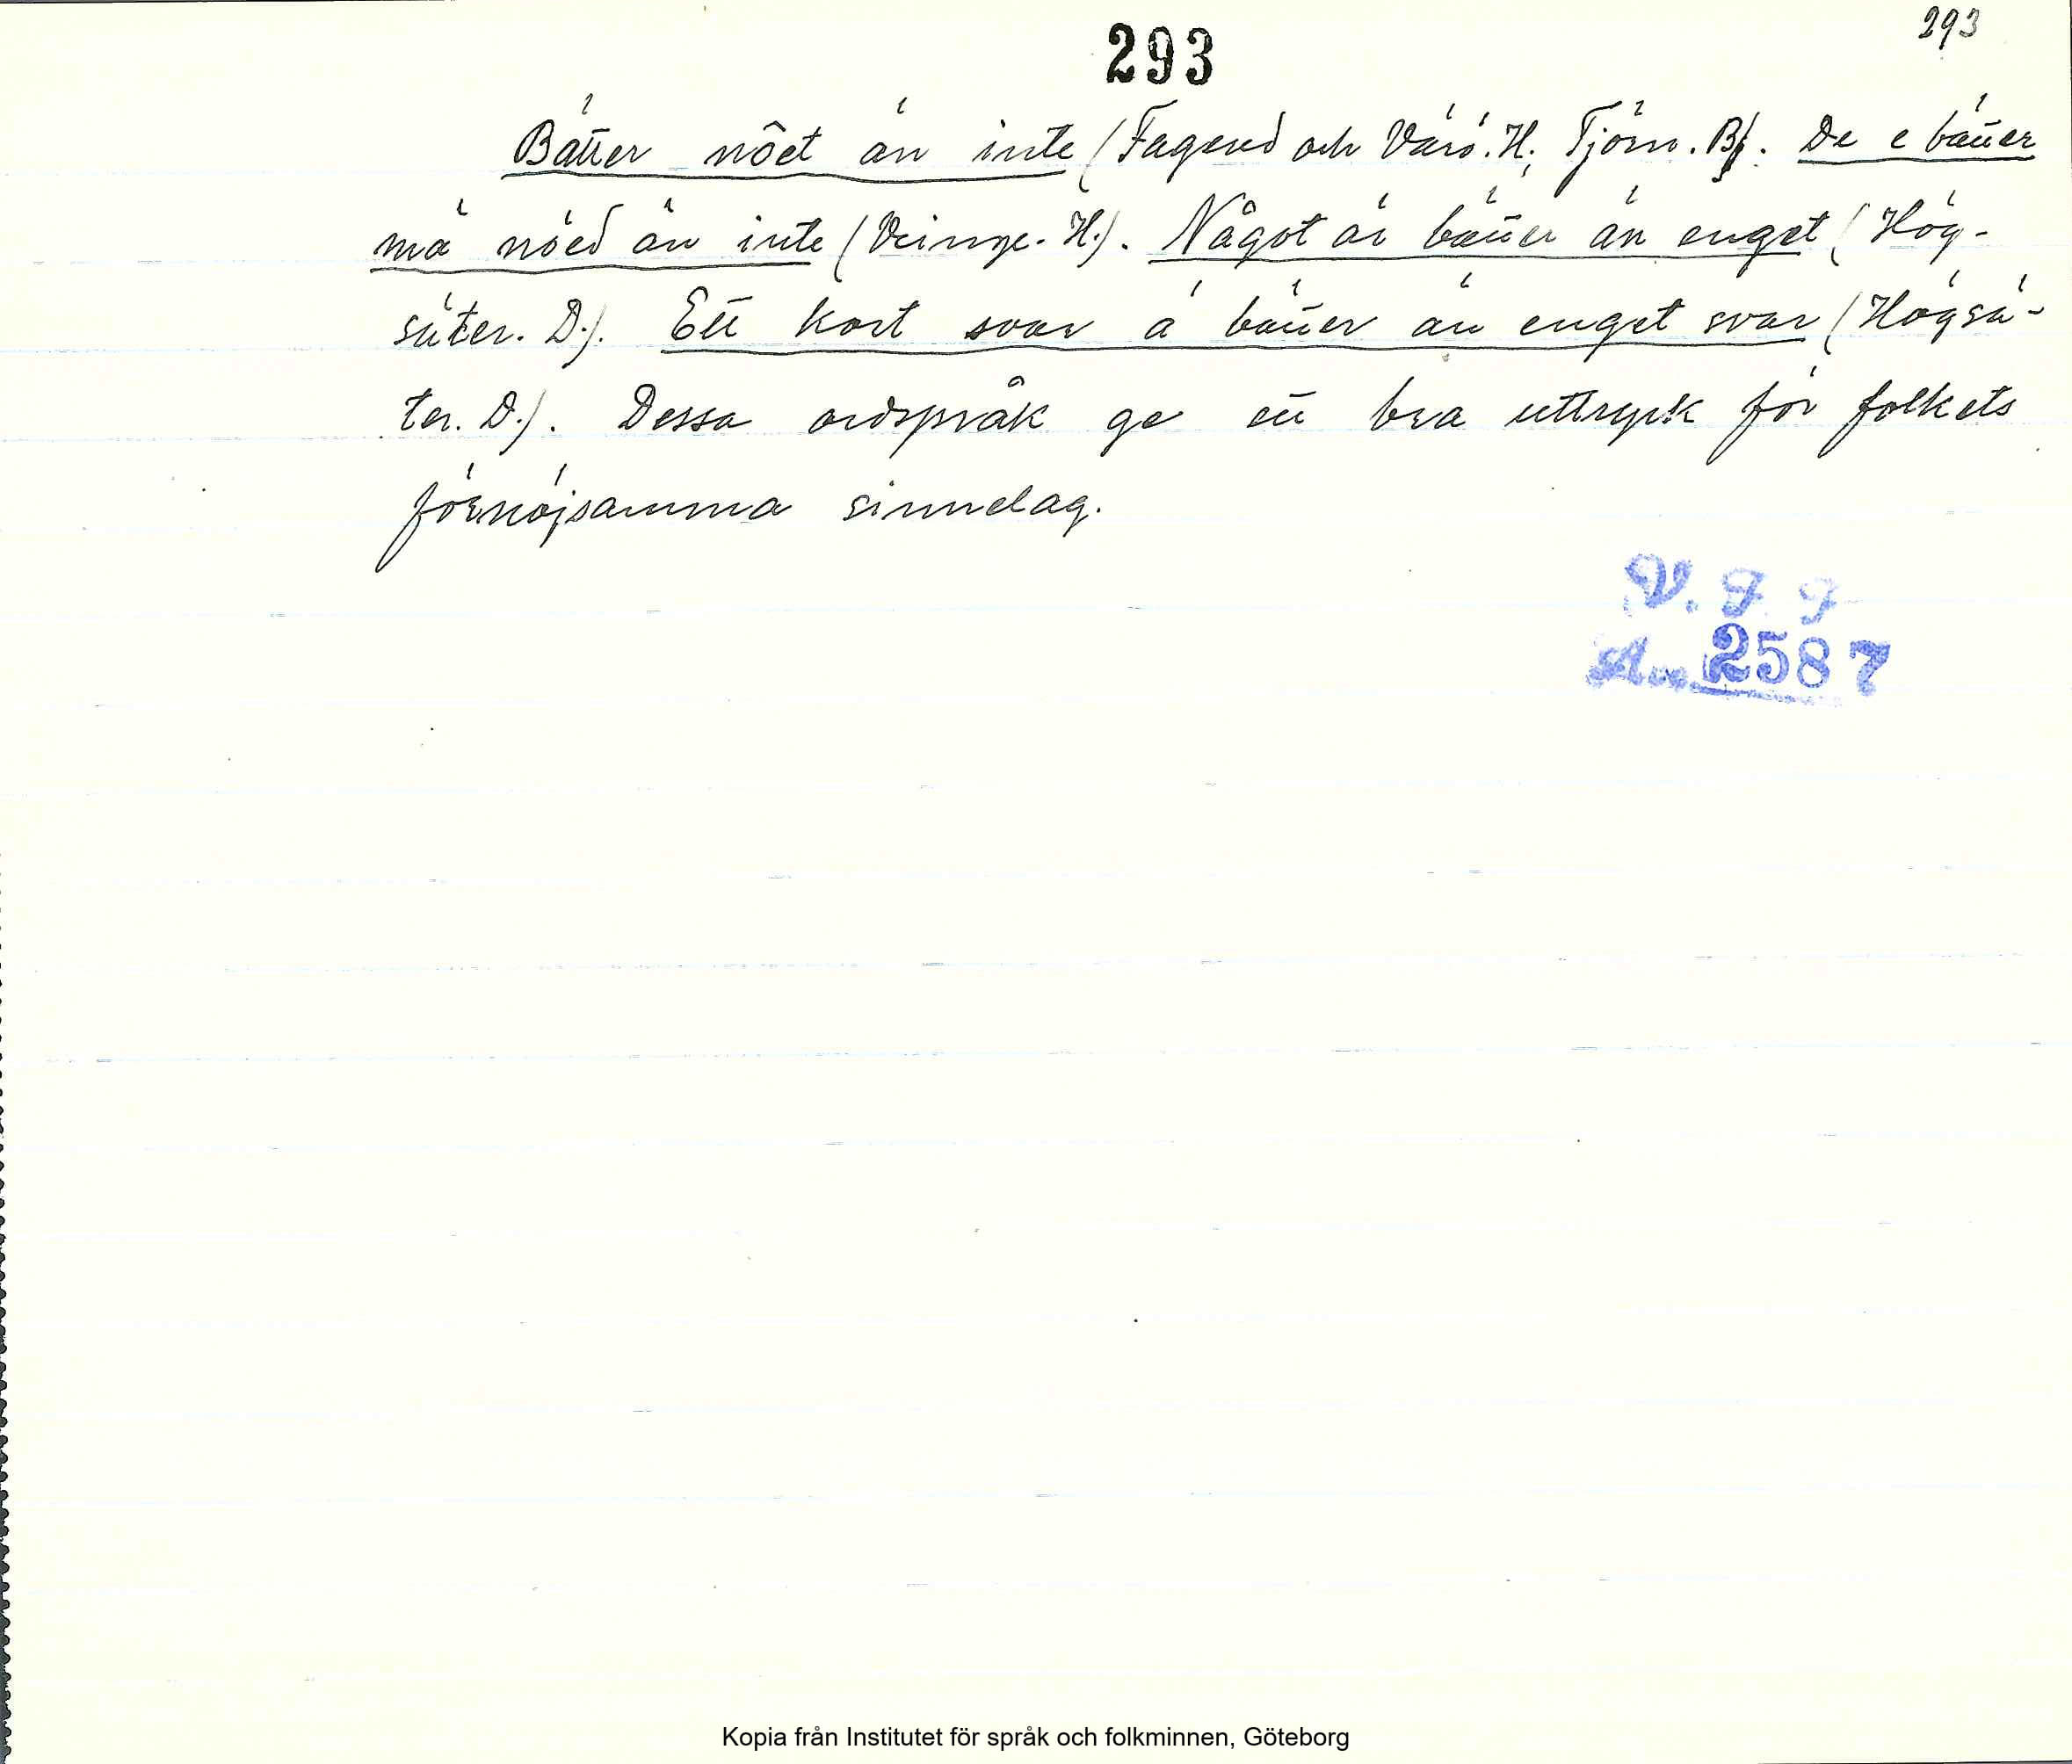 293
293
Bätter nôet än inte (Fagered och Värö. H.; Tjörn. B). De e bätter
mä nöed än inte (Veinge. H.). Något är bätter än enget (Hög-
säter. D.). Ett kort svar ä bätter än enget svar (Högsä-
ter. D.). Dessa ordspråk ge ett bra uttryck för folkets
förnöjsamma sinnelag.
V. G
2587
Kopia från Institutet för språk och folkminnen, Göteborg